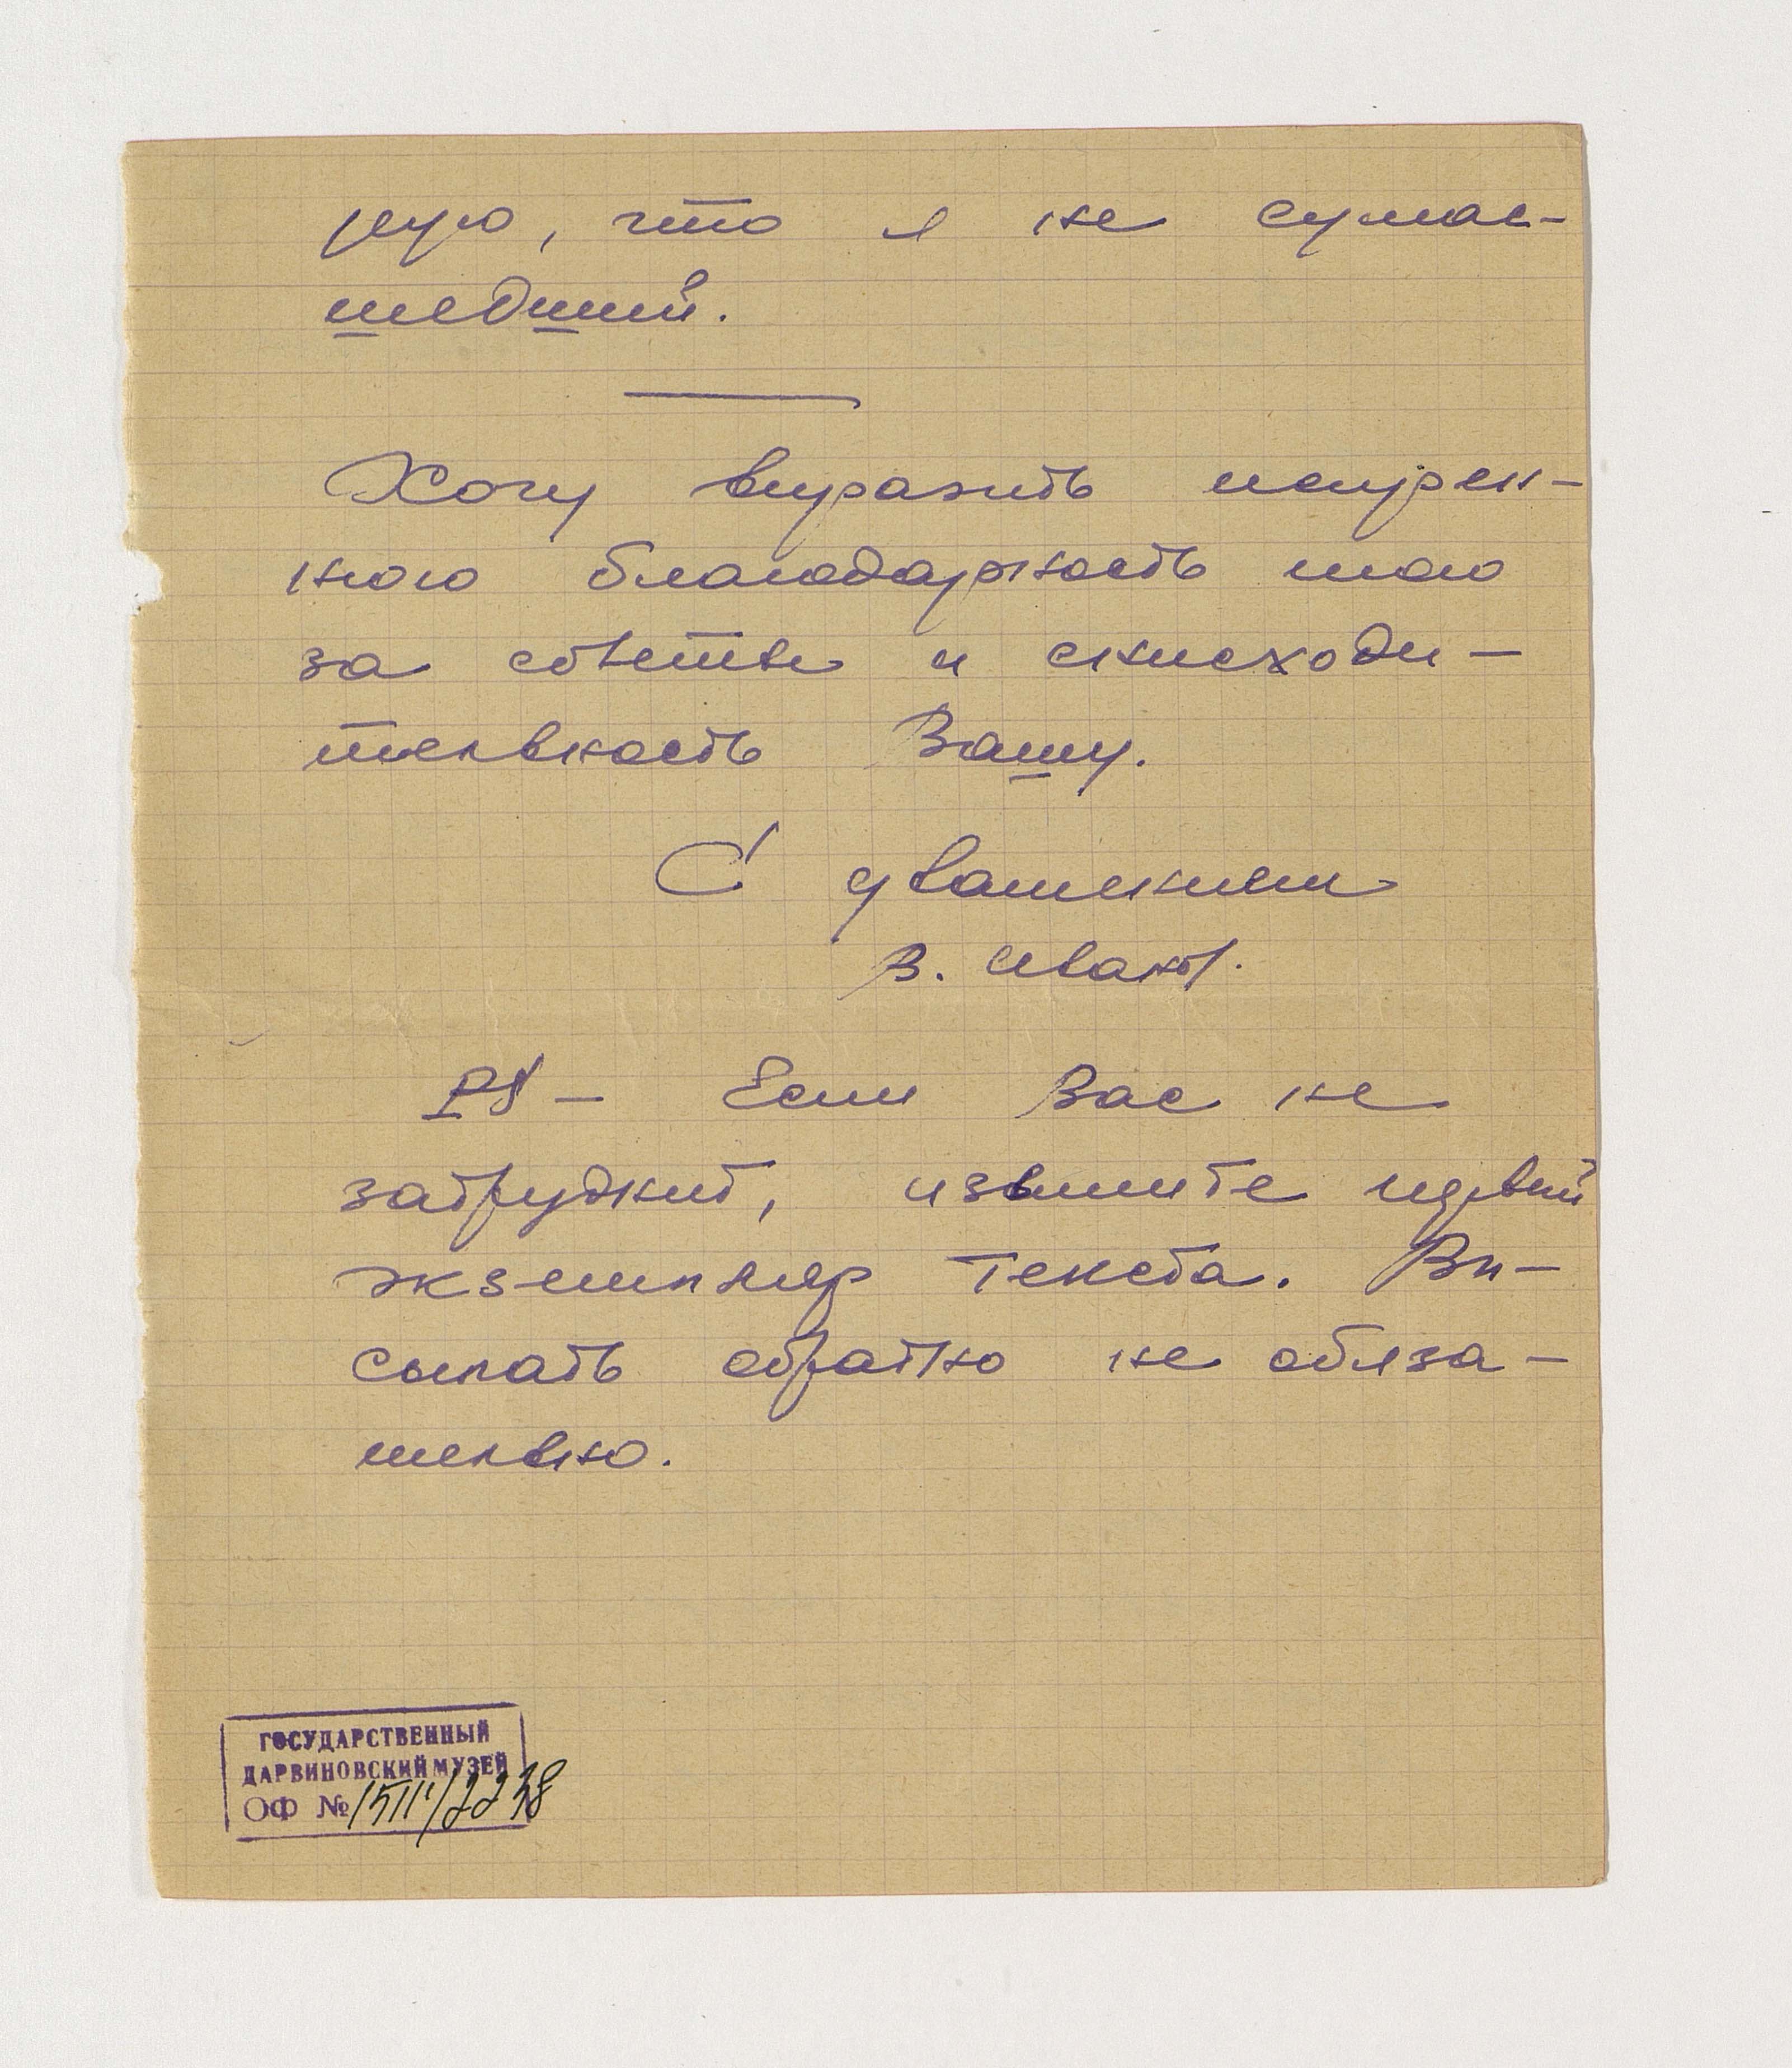 рую, что я не сумас-
шедший.
Хочу выразить искрен-
нюю благодарность мою
за советы и снисходи-
тельность Вашу.
С уважением
В. Иванов.
PS – Если Вас не
затруднит, изымите первый
экземпляр текста. Вы-
сылать обратно не обяза-
тельно.
ГОСУДАРСТВЕННЫЙ
ДАРВИНОВСКИЙ МУЗЕЙ
ОФ № 15111/2238